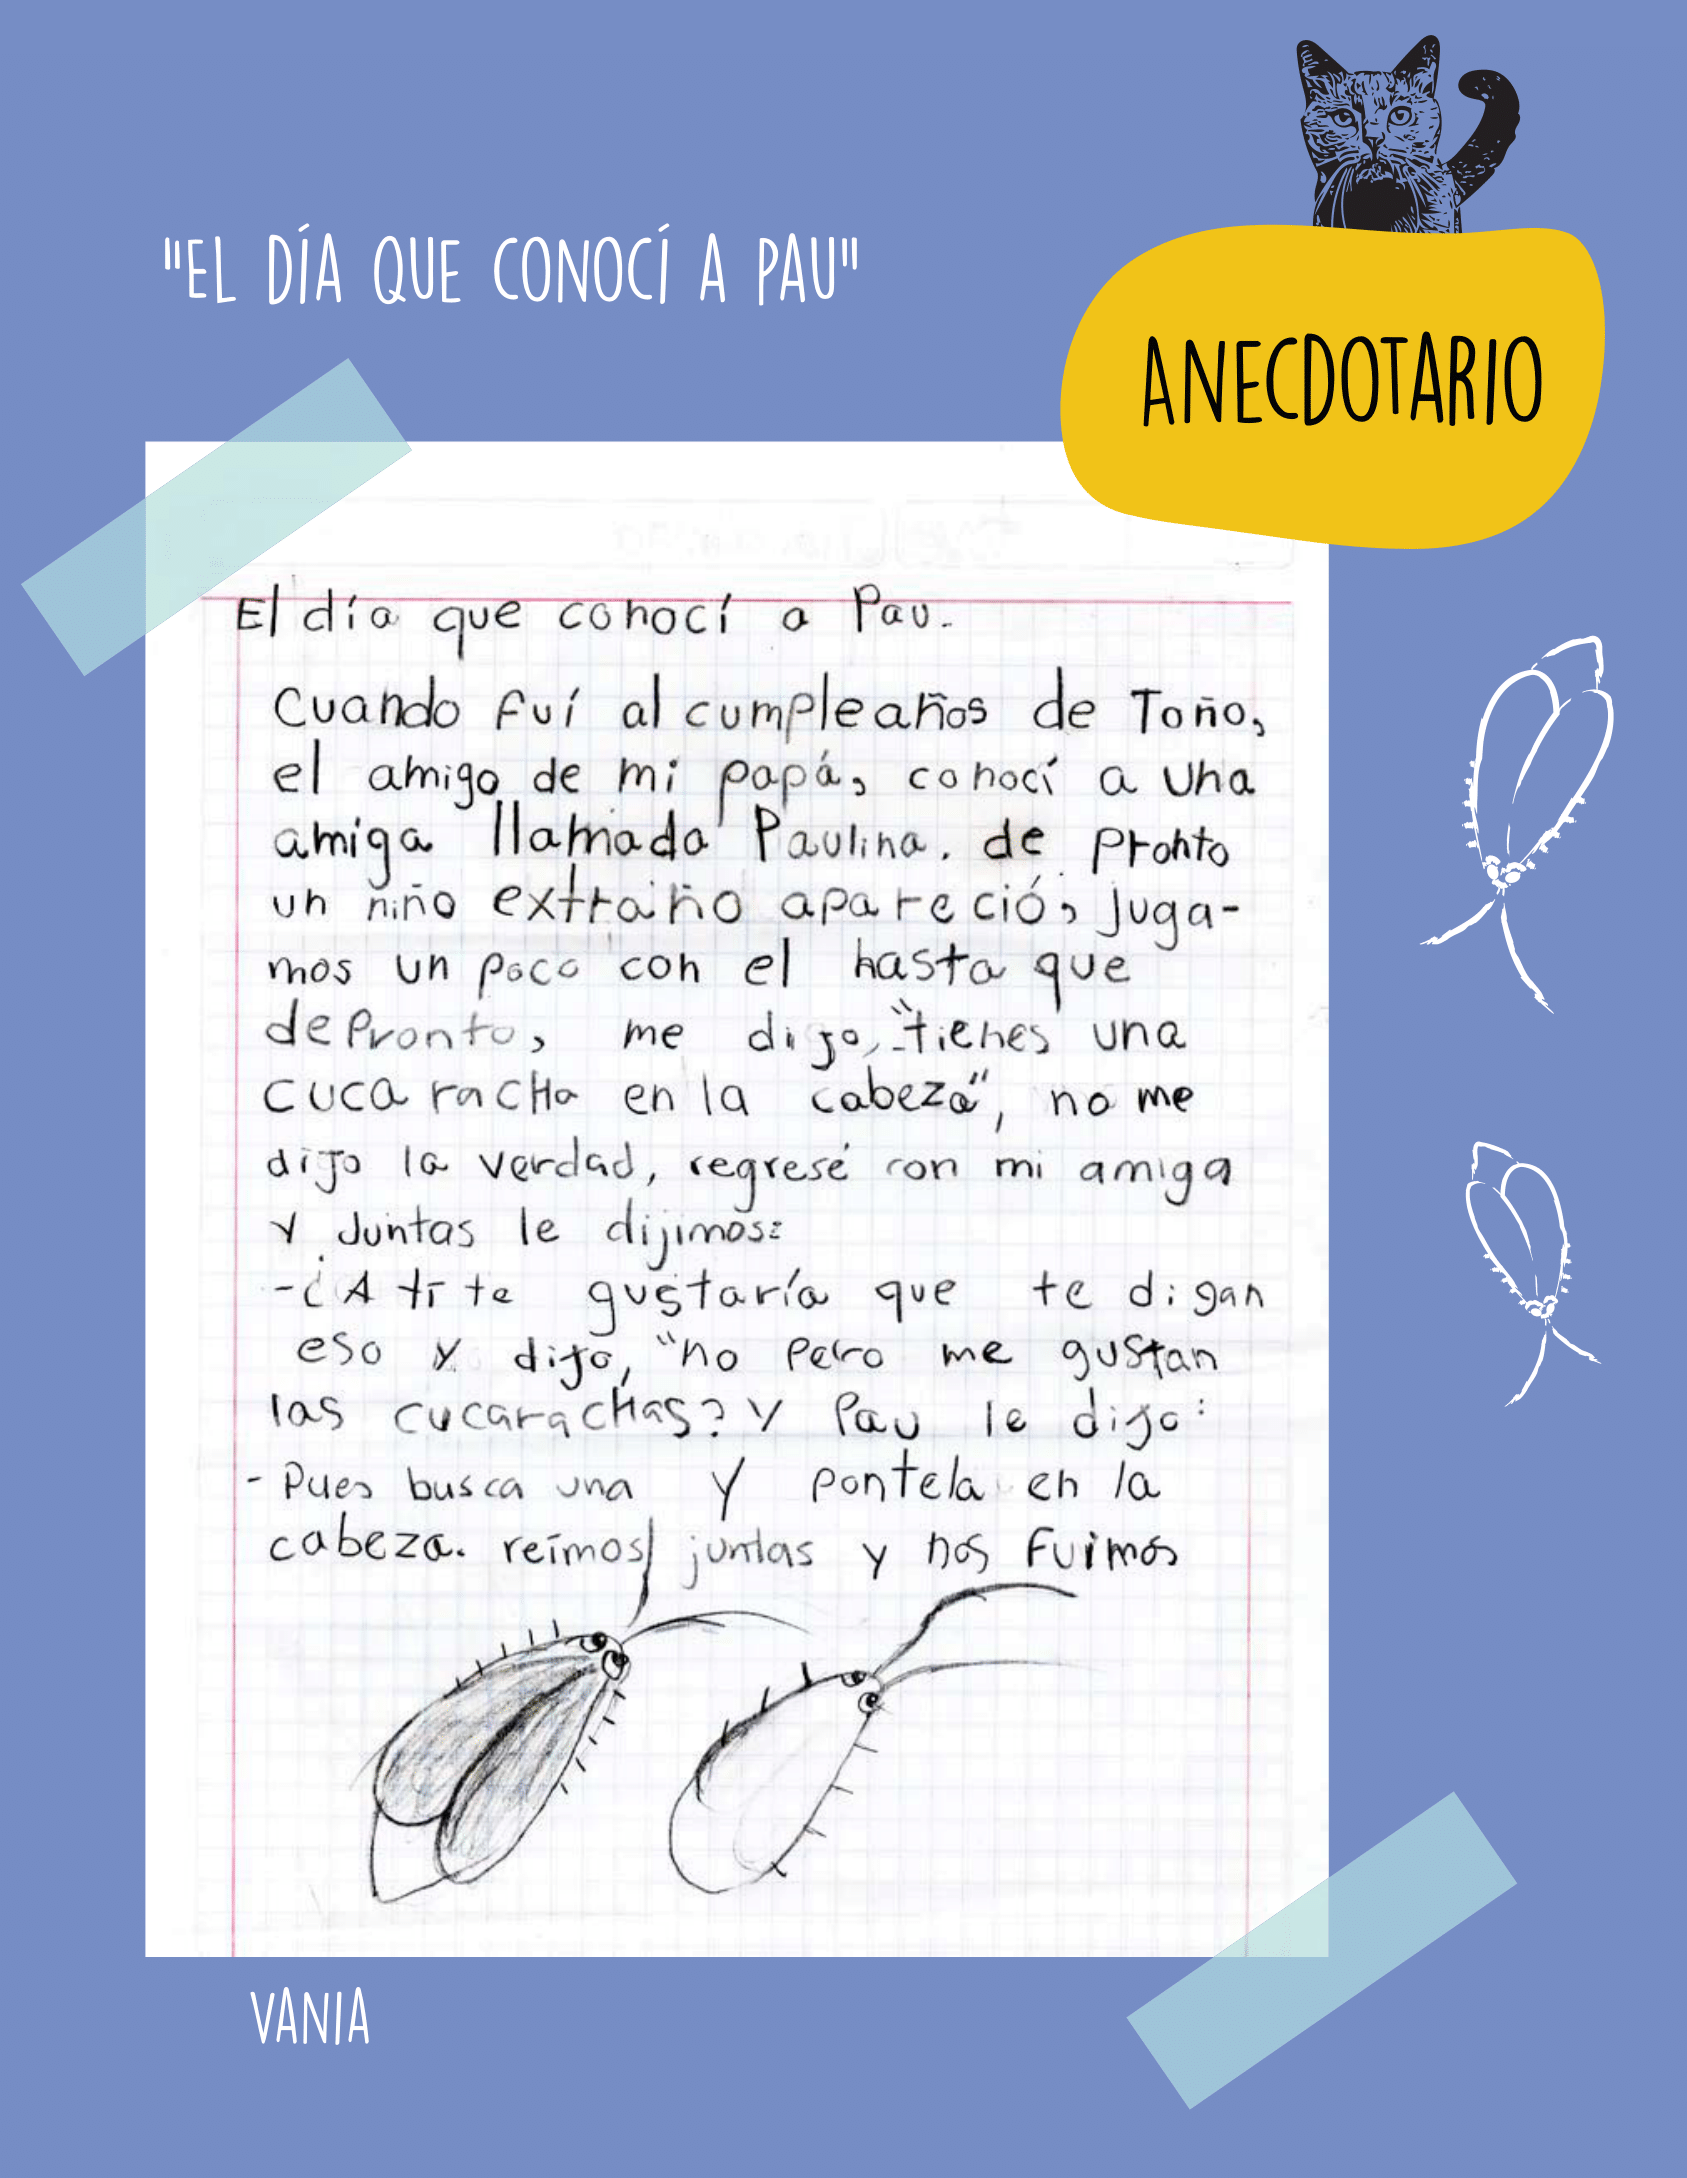 "EL DÍA QUE CONOCÍ A PAU"
ANECDOTARIO
El día que conocí a Pau.
Cuando fuí al cumpleaños de Toño,
el amigo de mi papá, conocí a una
amiga llamada Paulina. de pronto
un niño extraiño apareció, juga-
mos un poco con el hasta que
de Pronto, me dijo, "tienes una
cucaracha en la cabeza", no me
dijo la verdad, regresé con mi amiga
y Juntas le dijimos:
-¿A tí te gustaría que te digan
eso y dijo, "no pero me gustan
las cucarachas? y Pau le dijo:
- Pues busca una y pontela en la
cabeza. reímos juntas y nos fuimos
VANIA